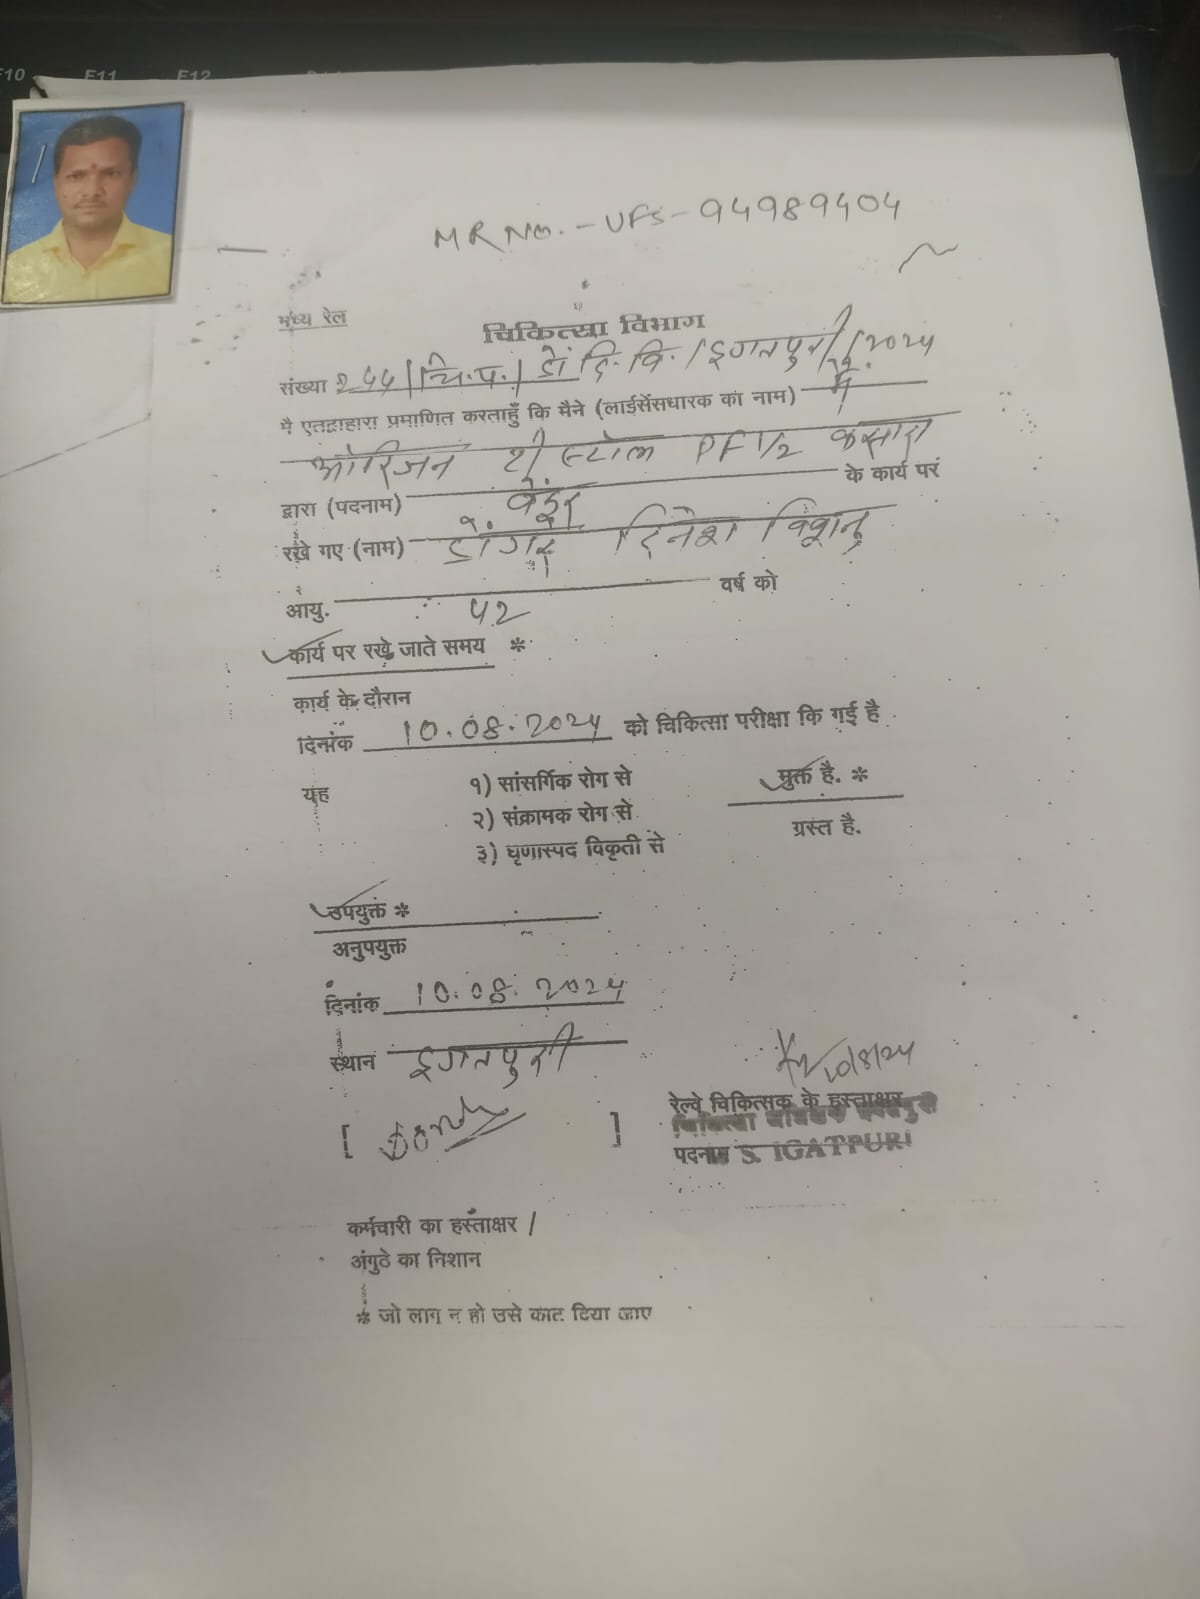 F10 F11 F12
MR No. - UFS - 94989404
मध्य रेल
चिकित्सा विभाग
संख्या 244/चि.प./डॉ दि.वि./इगतपुरी/2024
मै एतद्वाहारा प्रमाणित करताहुँ कि मैने (लाईसेंसधारक का नाम) मे.
ओरिजन टी स्टॉल PF 1/2 कसारा
द्वारा (पदनाम) वेंडर के कार्य पर
रखे गए (नाम) डोंगरे दिनेश विष्णू
आयु. 42 वर्ष को
कार्य पर रखे जाते समय *
कार्य के दौरान
दिनांक 10.08.2024 को चिकित्सा परीक्षा कि गई है
यह १) सांसर्गिक रोग से मुक्त है. *
२) संक्रामक रोग से
ग्रस्त है.
३) घृणास्पद विकृती से
उपयुक्त *
अनुपयुक्त
दिनांक 10.08.2024
स्थान इगतपुरी
10/8/24
रेल्वे चिकित्सक के हस्ताक्षर
[ ]
पदनाम S. IGATPURI
कर्मचारी का हस्ताक्षर /
अंगुठे का निशान
* जो लागू न हो उसे काट दिया जाए